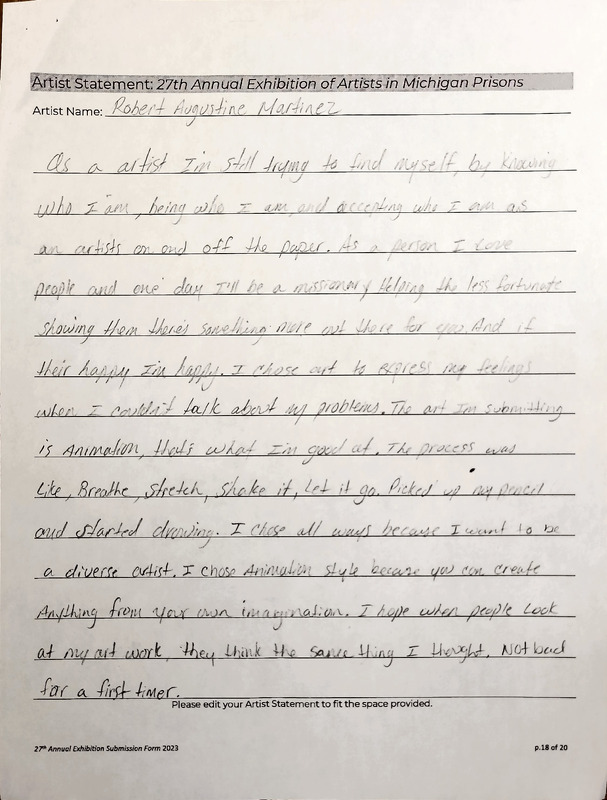 Artist Statement: 27th Annual Exhibition of Artists in Michigan Prisons
Artist Name: Robert Augustine Martinez
As a artist I'm still trying to find myself, by knowing
who I am, being who I am, and accepting who I am as
an artists on and off the paper. As a person I love
people and one day I'll be a missionary Helping the less fortunate
showing them there's something more out there for you. And if
their happy I'm happy. I chose art to express my feelings
when I couldn't talk about my problems. The art I'm submitting
is Animation, that's what I'm good at. The process was
Like, Breathe, Stretch, Shake it, Let it go. Picked up my pencil
and started drawing. I chose all ways because I want to be
a diverse artist. I chose Animation style because you can create
Anything from your own imagination. I hope when people Look
at my art work, they think the same thing I thought. Not bad
for a first timer.
Please edit your Artist Statement to fit the space provided.
27th Annual Exhibition Submission Form 2023
p.18 of 20